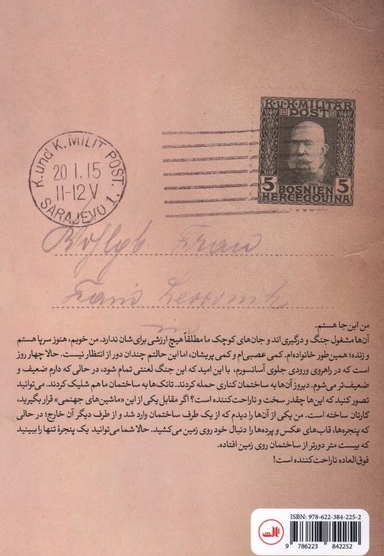 K. und K. MILIT. POST.
20 I. 15
11-12 V
SARAJEVO 1.
K.u.K.MILITÄR
POST
5 5
BOSNIEN
HERCEGOVINA
Frau
من این‌جا هستم.
آن‌ها مشغول جنگ و درگیری‌اند و جان‌های کوچک ما مطلقاً هیچ ارزشی برای‌شان ندارد. من خوبم، هنوز سرپا هستم
و زنده؛ همین‌طور خانواده‌ام. کمی عصبی‌ام و کمی پریشان، اما این حالتم چندان دور از انتظار نیست. حالا چهار روز
است که در راهروی ورودی جلوی آسانسورم، با این امید که این جنگ لعنتی تمام شود، در حالی که دارم ضعیف و
ضعیف‌تر می‌شوم. دیروز آن‌ها به ساختمان کناری حمله کردند. تانک‌ها به ساختمان ما هم شلیک کردند. می‌توانید
تصور کنید که این‌ها چقدر سخت و ناراحت‌کننده است؟ اگر مقابل یکی از این «ماشین‌های جهنمی» قرار بگیرید،
کارتان ساخته است. من یکی از آن‌ها را دیدم که از یک طرف ساختمان وارد شد و از طرف دیگر آن خارج؛ در حالی
که پنجره‌ها، قاب‌های عکس و پرده‌ها را دنبال خود روی زمین می‌کشید. حالا شما می‌توانید یک پنجرهٔ تنها را ببینید
که بیست متر دورتر از ساختمان روی زمین افتاده.
فوق‌العاده ناراحت‌کننده است!
ISBN: 978-622-384-225-2
9 786223 842252